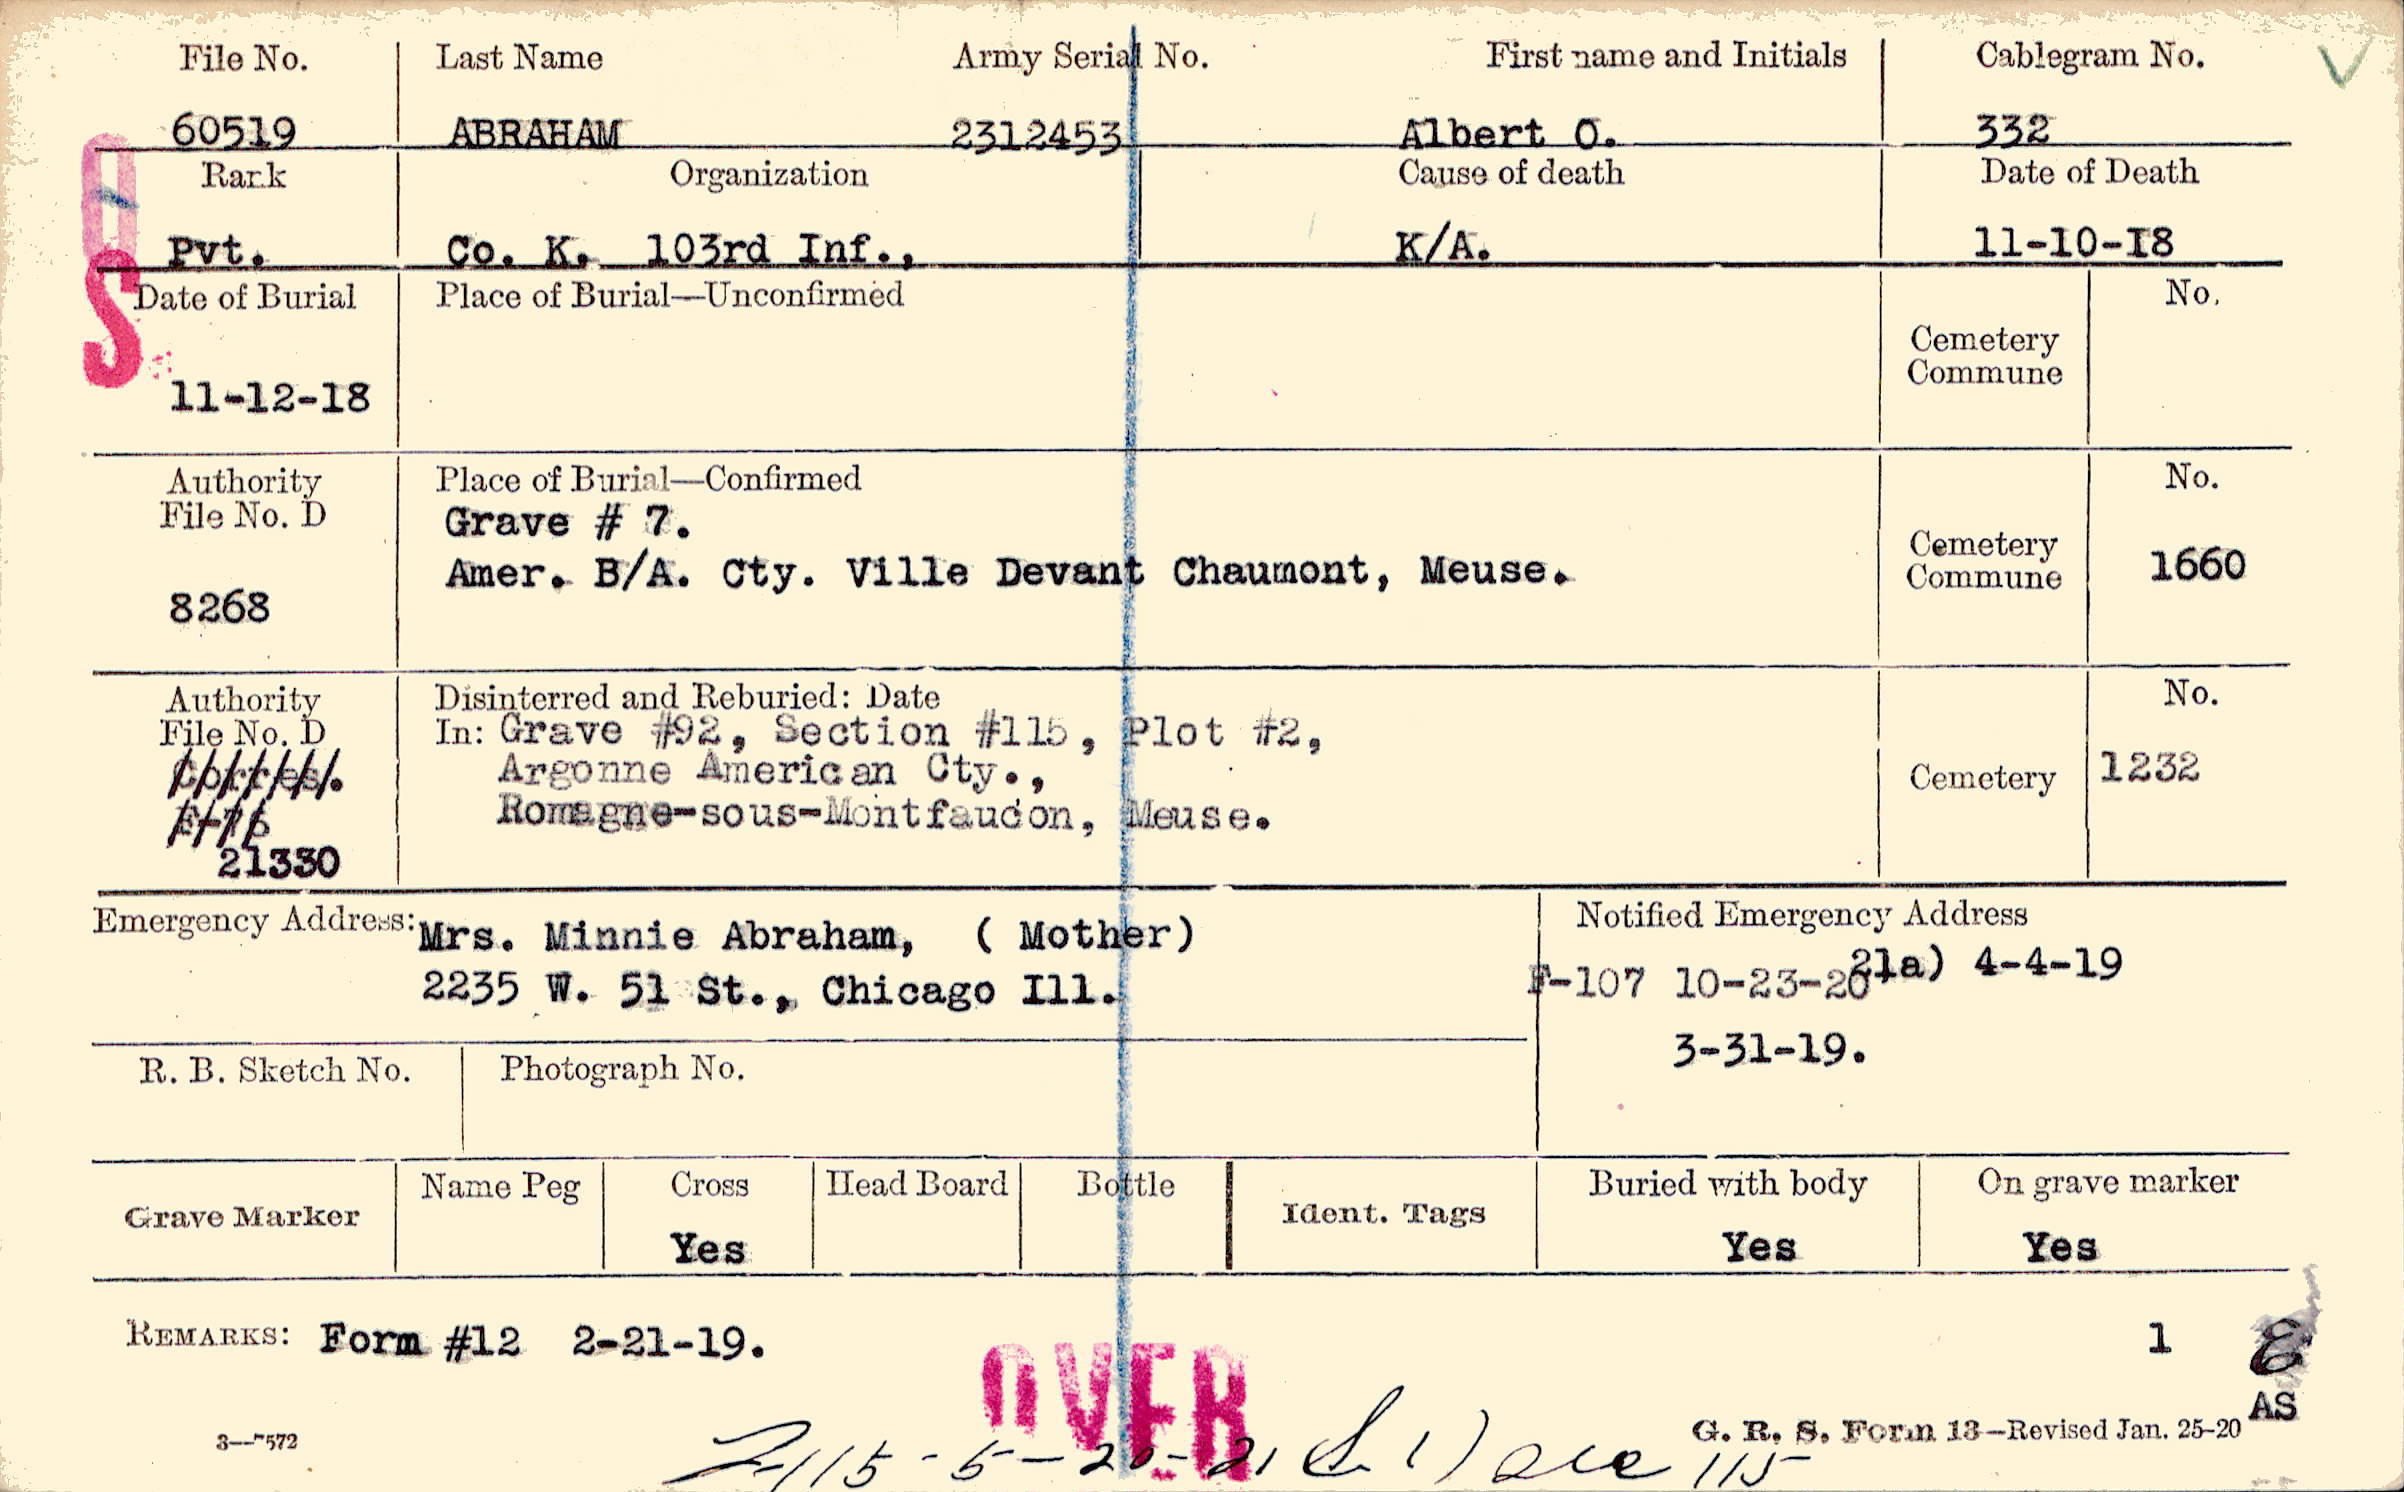 File No. Last Name Army Serial No. First name and Initials Cablegram No.
60519 ABRAHAM 2312453 Albert O. 332
Rank Organization Cause of death Date of Death
Pvt. Co. K. 103rd Inf., K/A. 11-10-18
S
Date of Burial Place of Burial—Unconfirmed No.
Cemetery
Commune
11-12-18
Authority Place of Burial—Confirmed No.
File No. D Grave # 7.
Amer. B/A. Cty. Ville Devant Chaumont, Meuse.
Cemetery
Commune 1660
8268
Authority Disinterred and Reburied: Date No.
File No. D In: Grave #92, Section #115, Plot #2,
Corres. Argonne American Cty., Cemetery 1232
F-76 Romagne-sous-Montfaucon, Meuse.
21330
Emergency Address: Mrs. Minnie Abraham, ( Mother)
2235 W. 51 St., Chicago Ill.
Notified Emergency Address
21a) 4-4-19
F-107 10-23-20
3-31-19.
R. B. Sketch No. Photograph No.
Grave Marker Name Peg Cross Head Board Bottle Ident. Tags Buried with body On grave marker
Yes Yes Yes
REMARKS: Form #12 2-21-19. 1
OVER
AS
3—7572 G. R. S. Form 13—Revised Jan. 25-20
115-5-20-21 115